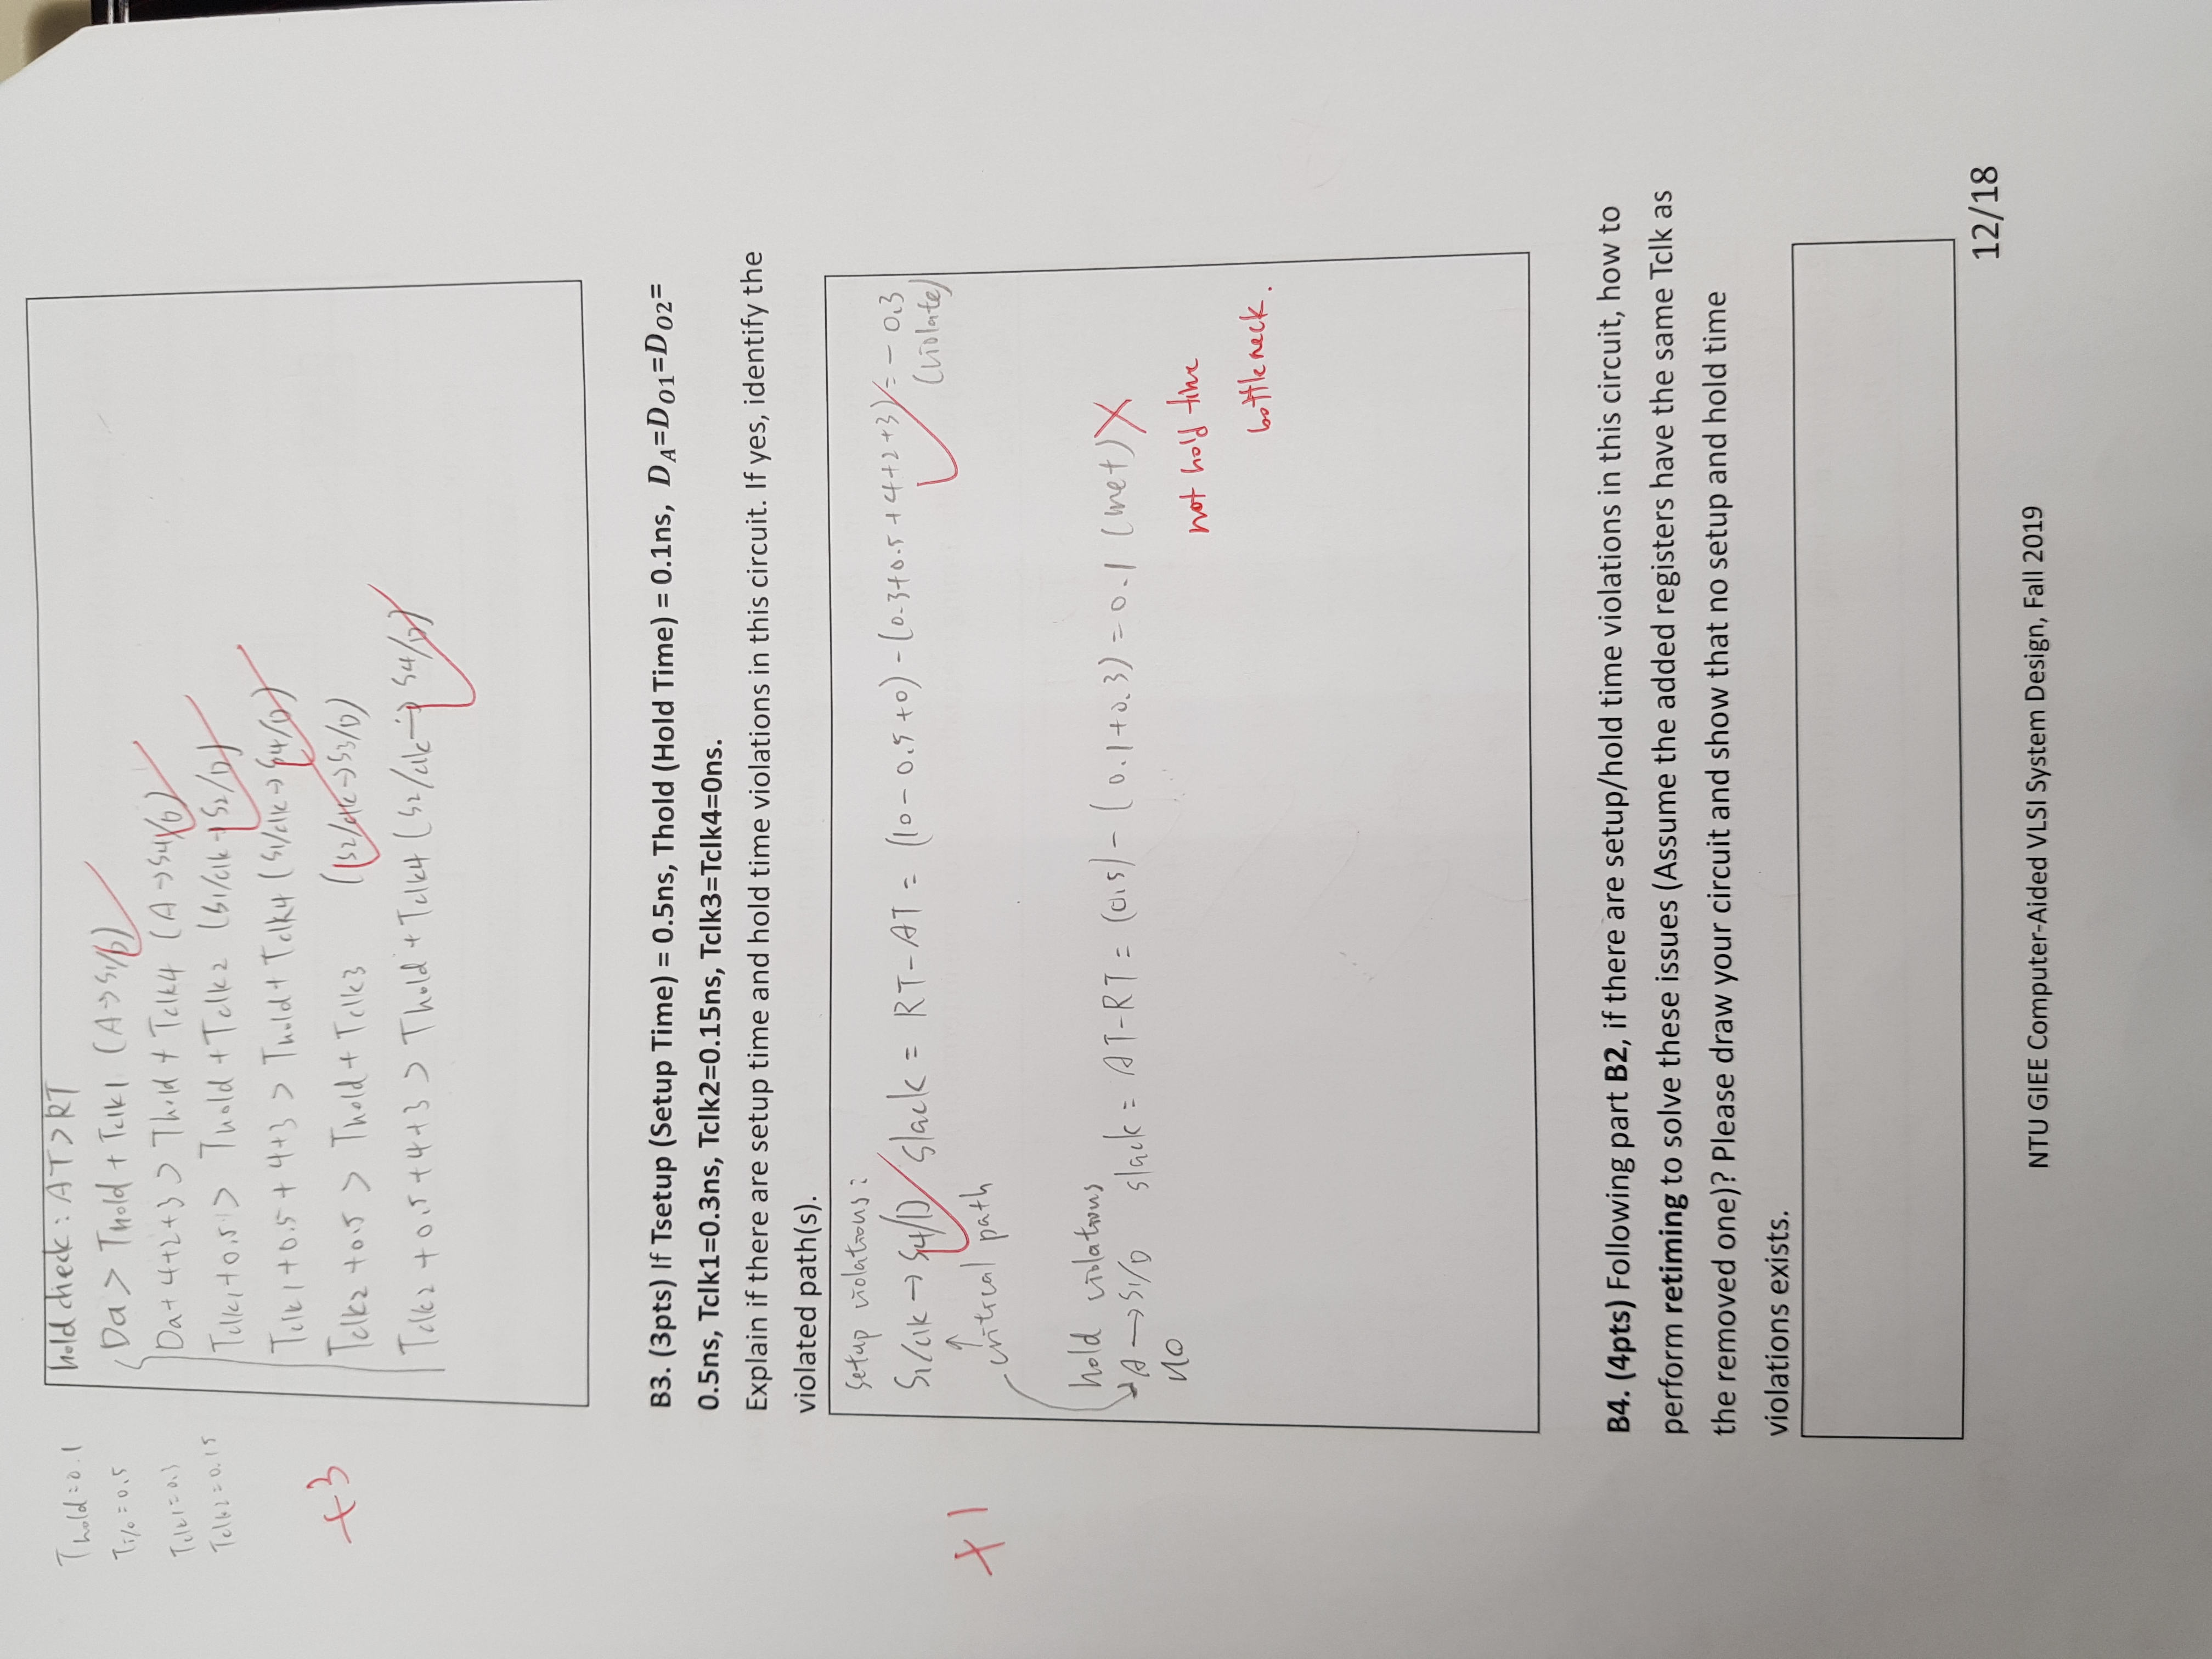 Thold=0.1
Ti/o=0.5
Tclk1=0.3
Tclk2=0.15
hold check: AT>RT
Da > Thold + Tclk1 (A→S1/D)
Da+4+2+3 > Thold + Tclk4 (A→S4/D)
Tclk1+0.5 > Thold + Tclk2 (S1/clk→S2/D)
Tclk1+0.5+4+3 > Thold + Tclk4 (S1/clk→S4/D)
+3
Tclk2+0.5 > Thold + Tclk3 (S2/clk→S3/D)
Tclk2+0.5+4+3 > Thold + Tclk4 (S2/clk→S4/D)
B3. (3pts) If Tsetup (Setup Time) = 0.5ns, Thold (Hold Time) = 0.1ns, D_A=D_O1=D_O2=
0.5ns, Tclk1=0.3ns, Tclk2=0.15ns, Tclk3=Tclk4=0ns.
Explain if there are setup time and hold time violations in this circuit. If yes, identify the
violated path(s).
setup violations:
S1/clk → S4/D slack = RT-AT = (10-0.5+0)-(0.3+0.5+4+2+3)=-0.3
(violate)
+1
critical path
hold violations
A→S1/D slack = AT-RT = (0.5)-(0.1+0.3)=0.1 (met) X
NO
not hold time
bottleneck.
B4. (4pts) Following part B2, if there are setup/hold time violations in this circuit, how to
perform retiming to solve these issues (Assume the added registers have the same Tclk as
the removed one)? Please draw your circuit and show that no setup and hold time
violations exists.
12/18
NTU GIEE Computer-Aided VLSI System Design, Fall 2019